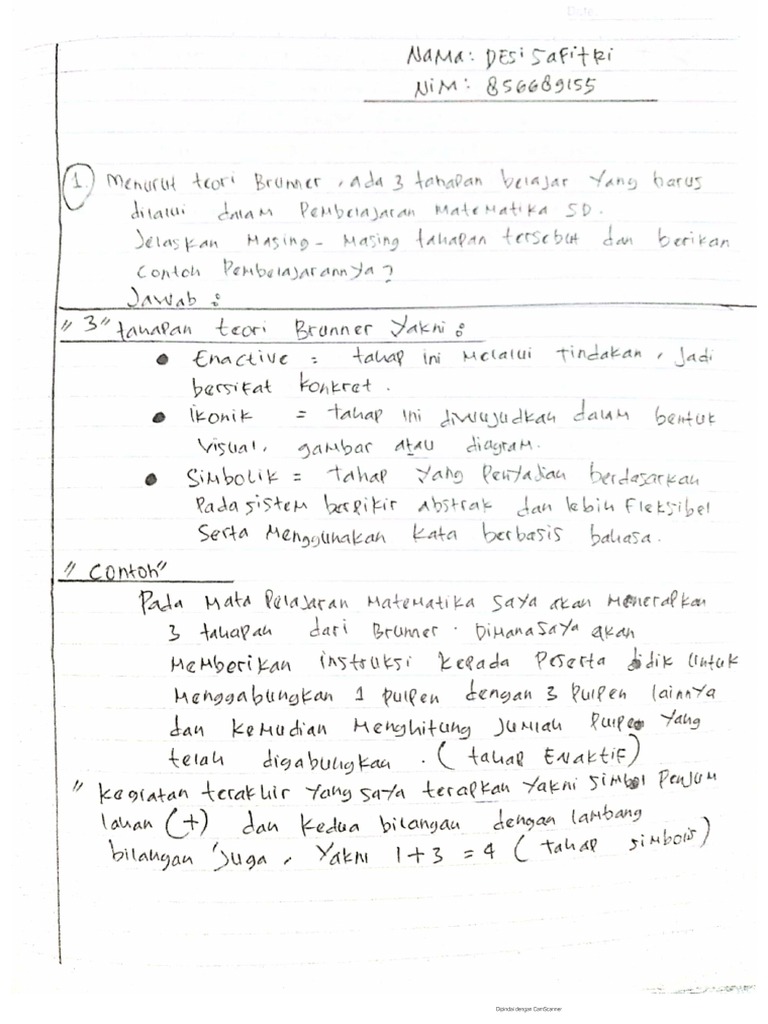 Date:
Nama: Desi Safitri
NIM: 856689155
1. Menurut teori Brunner, ada 3 tahapan belajar yang harus
dilalui dalam Pembelajaran Matematika SD.
Jelaskan Masing-Masing tahapan tersebut dan berikan
Contoh Pembelajarannya?
Jawab:
"3" tahapan teori Brunner yakni:
• Enactive = tahap ini Melalui Tindakan, Jadi
bersifat konkret.
• Ikonik = tahap ini diwujudkan dalam bentuk
Visual, gambar atau diagram.
• Simbolik = tahap yang Penyajian berdasarkan
Pada sistem berpikir abstrak dan lebih Fleksibel
Serta Menggunakan kata berbasis bahasa.
"Contoh"
Pada Mata Pelajaran Matematika saya akan Menerapkan
3 tahapan dari Brunner. Dimana saya akan
Memberikan instruksi kepada Peserta didik Untuk
Menggabungkan 1 pulpen dengan 3 Pulpen lainnya
dan kemudian Menghitung Jumlah yang
telah digabungkan. (tahap Enaktif)
" kegiatan terakhir yang saya terapkan yakni simbol Penjum
lahan (+) dan kedua bilangan dengan lambang
bilangan Juga, Yakni 1+3 = 4 (tahap simbolis)
Dipindai dengan CamScanner